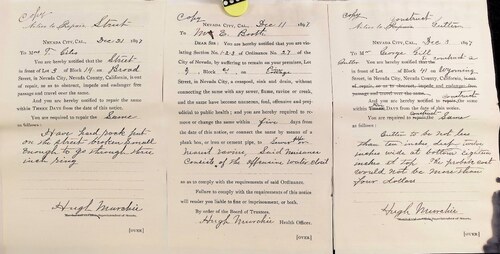 Copy
Notice to Repair Street
NEVADA CITY, CAL., Dec 21 1897
To Mr T.
You are hereby notified that the Street
in front of Lot 3 of Block 19 on Broad
Street, in Nevada City, Nevada County, California, is out
of repair, so as to obstruct, impede and endanger free
passage and travel over the same.
And you are hereby required to repair the same
within THREE DAYS from the date of this notice.
You are required to repair the Same
as follows:
Have hard rock put
on the street broken small
enough to go through three
inch ring
Hugh Murchie
[OVER]
Copy
NEVADA CITY, CAL., Dec 11 1897
To Mr E. Booth
DEAR SIR: You are hereby notified that you are vio-
lating Section No. 1 2 & 3 of Ordinance No. 27 of the
City of Nevada, by suffering to remain on your premises, Lot
of Block on
Street, in Nevada City, a cesspool, sink and drain, without
connecting the same with any sewer, flume, ravine or creek,
and the same have become noxious, foul, offensive and preju-
dicial to public health; and you are hereby required to re-
move or change the same within five days from
the date of this notice, or connect the same by means of a
plank box, or iron or cement pipe, to
nearest sewer. Said nuisance
Consists of the offensive water closet
so as to comply with the requirements of said Ordinance.
Failure to comply with the requirements of this notice
will render you liable to fine or imprisonment, or both.
By order of the Board of Trustees.
Hugh Murchie Health Officer.
[OVER]
Copy
Construct
Notice to Repair Gutter
NEVADA CITY, CAL., Dec 1897
To Mr George Gill
You are hereby notified to construct a
Gutter in front of Lot of Block on Wyoming
Street, in Nevada City, Nevada County, California, is out
of repair, so as to obstruct, impede and endanger free
passage and travel over the same.
And you are hereby required to repair the same
within DAYS from the date of this notice.
construct
You are required to repair Same
as follows:
Gutter to be not less
than ten inches deep twelve
inches wide at bottom eighteen
inches at top. The probable cost
would not be more than
four dollars
Hugh Murchie
[OVER]